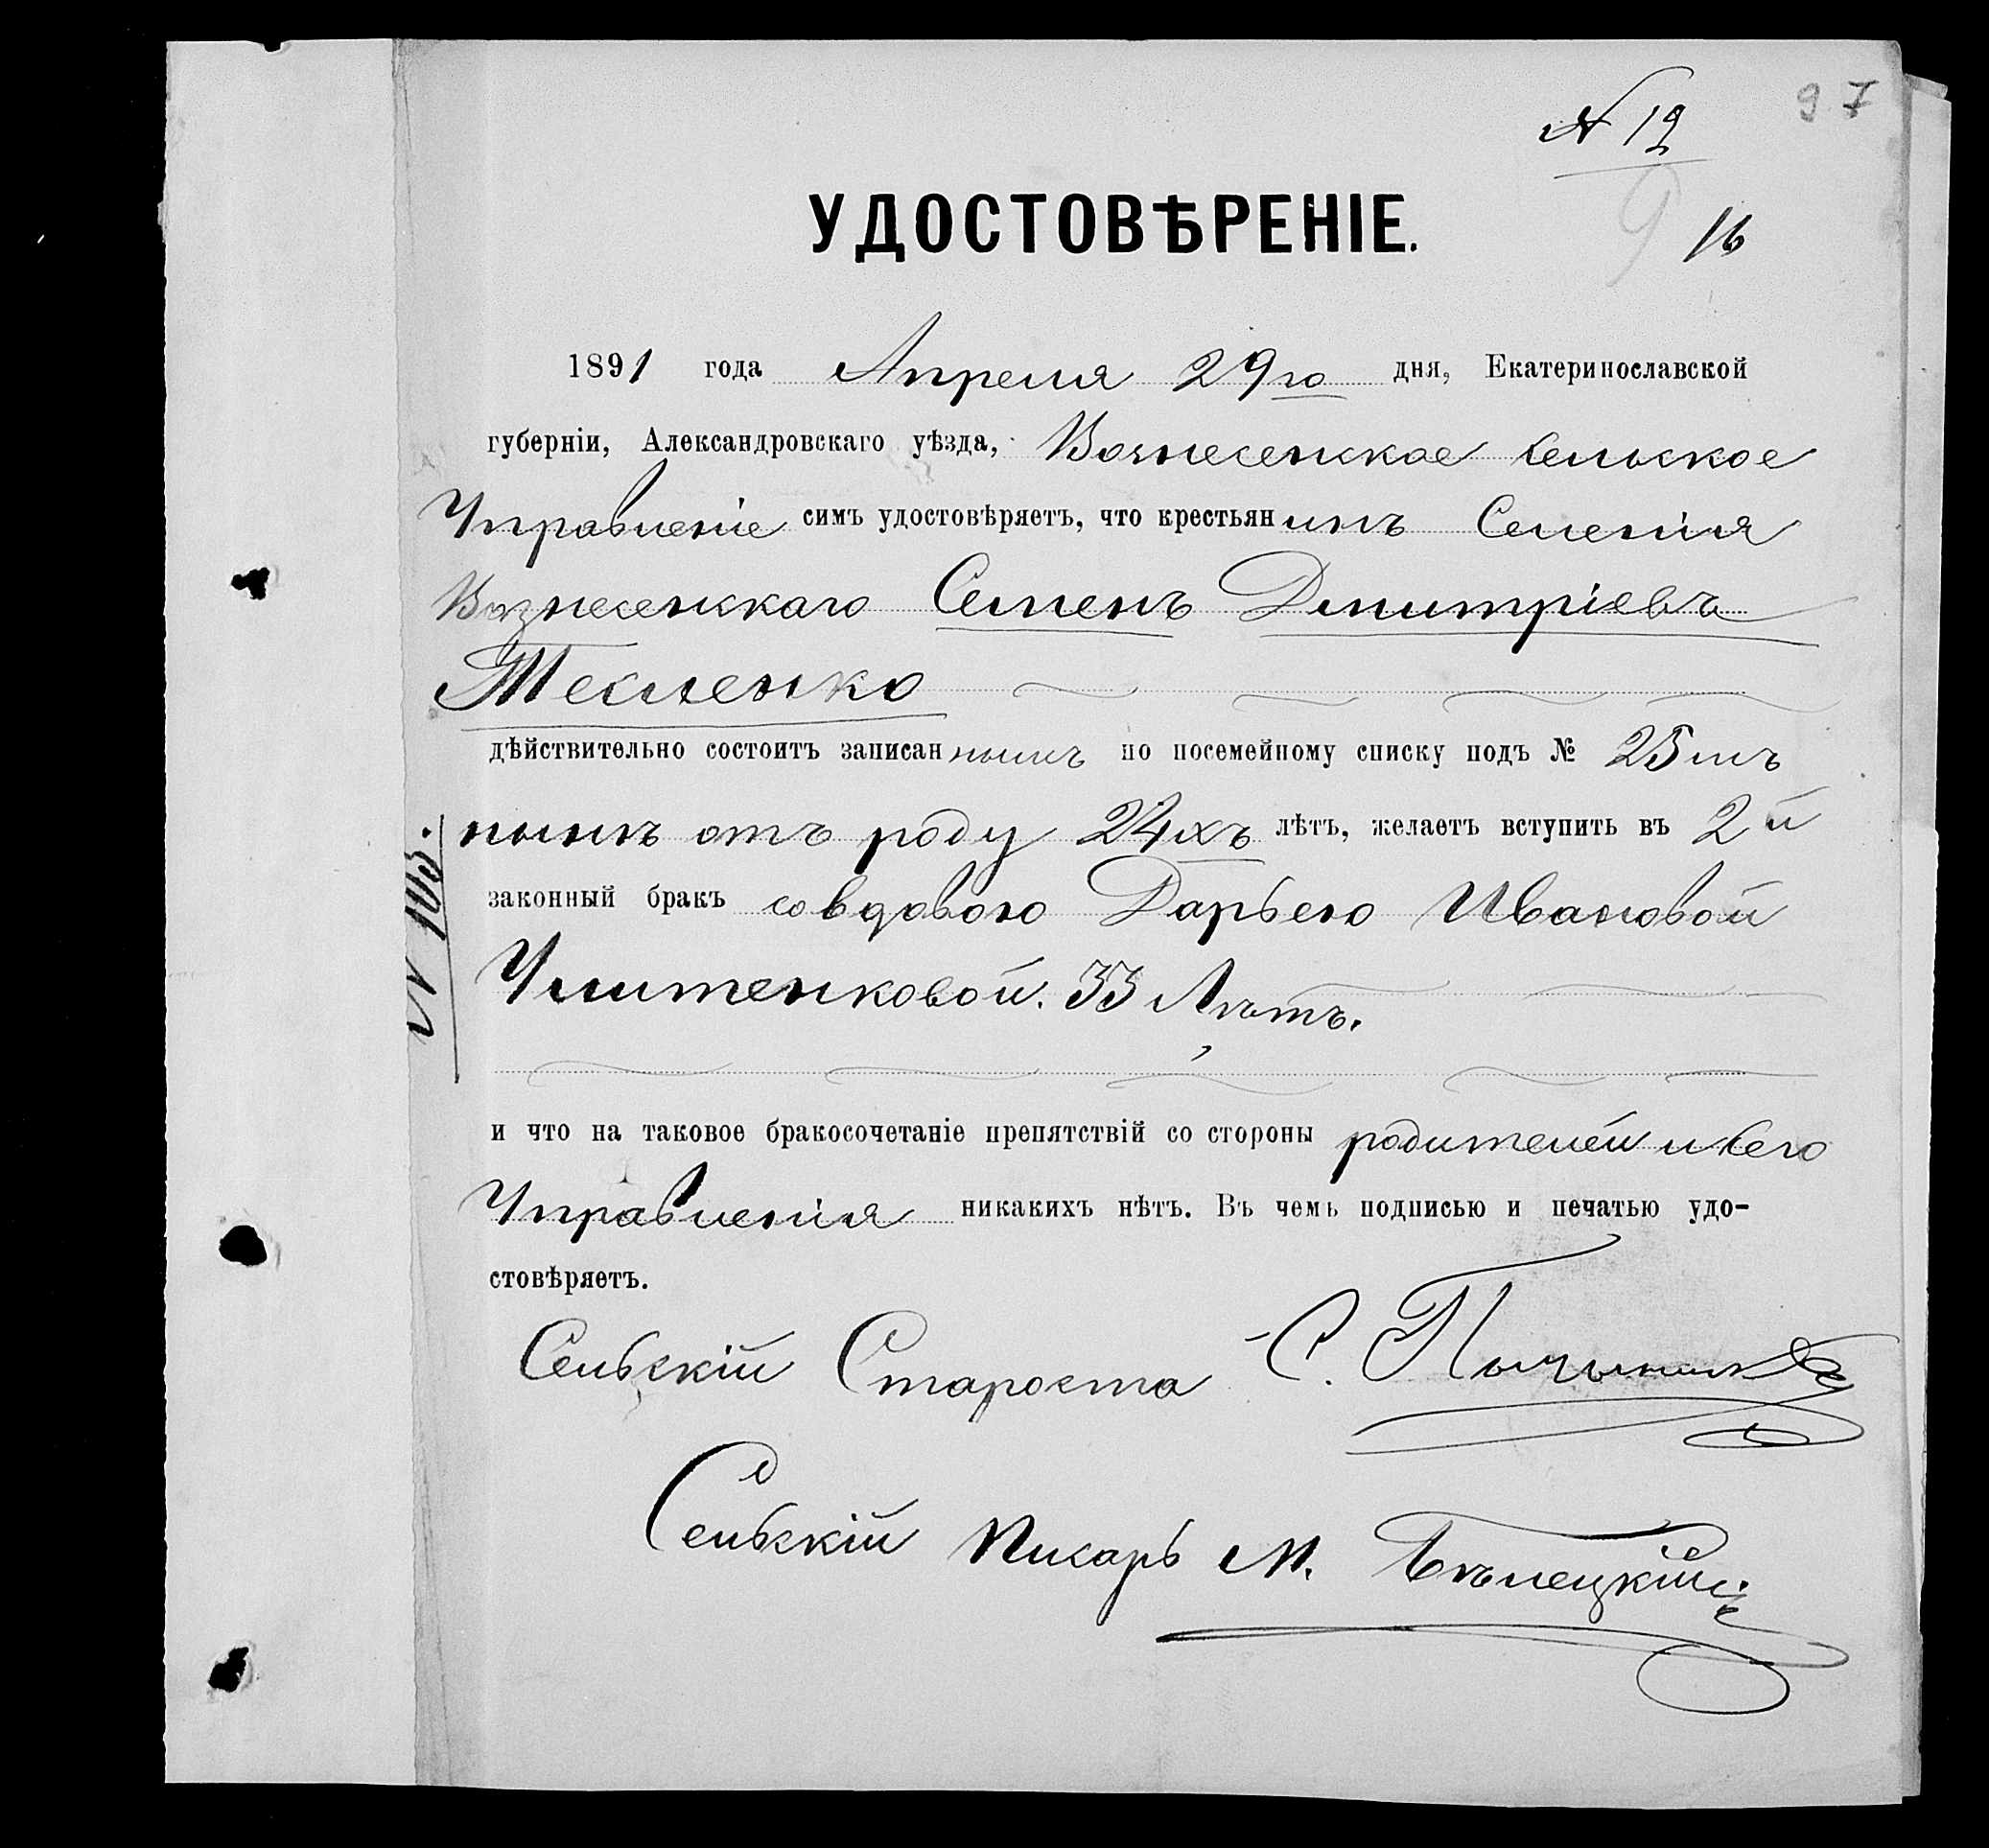 97
№ 19
9
16
УДОСТОВѢРЕНІЕ.
1891 года Апреля 29го дня, Екатеринославской
губерніи, Александровскаго уѣзда, Вознесенское Сельское
Управленіе симъ удостовѣряетъ, что крестьянинъ Селенія
Вознесенскаго Семенъ Дмитріевъ
Тесленко
дѣйствительно состоитъ записаннымъ по посемейному списку подъ № 25мъ
нынѣ отъ роду 24хъ лѣтъ, желаетъ вступить въ 2й
законный бракъ со вдовою Дарьею Ивановой
33 Лѣтъ.
№ 105.
и что на таковое бракосочетаніе препятствій со стороны родителей и сего
Управленія никакихъ нѣтъ. Въ чемъ подписью и печатью удо-
стовѣряетъ.
Сельскій Староста С.
Сельскій Писарь М. Бѣлецкій